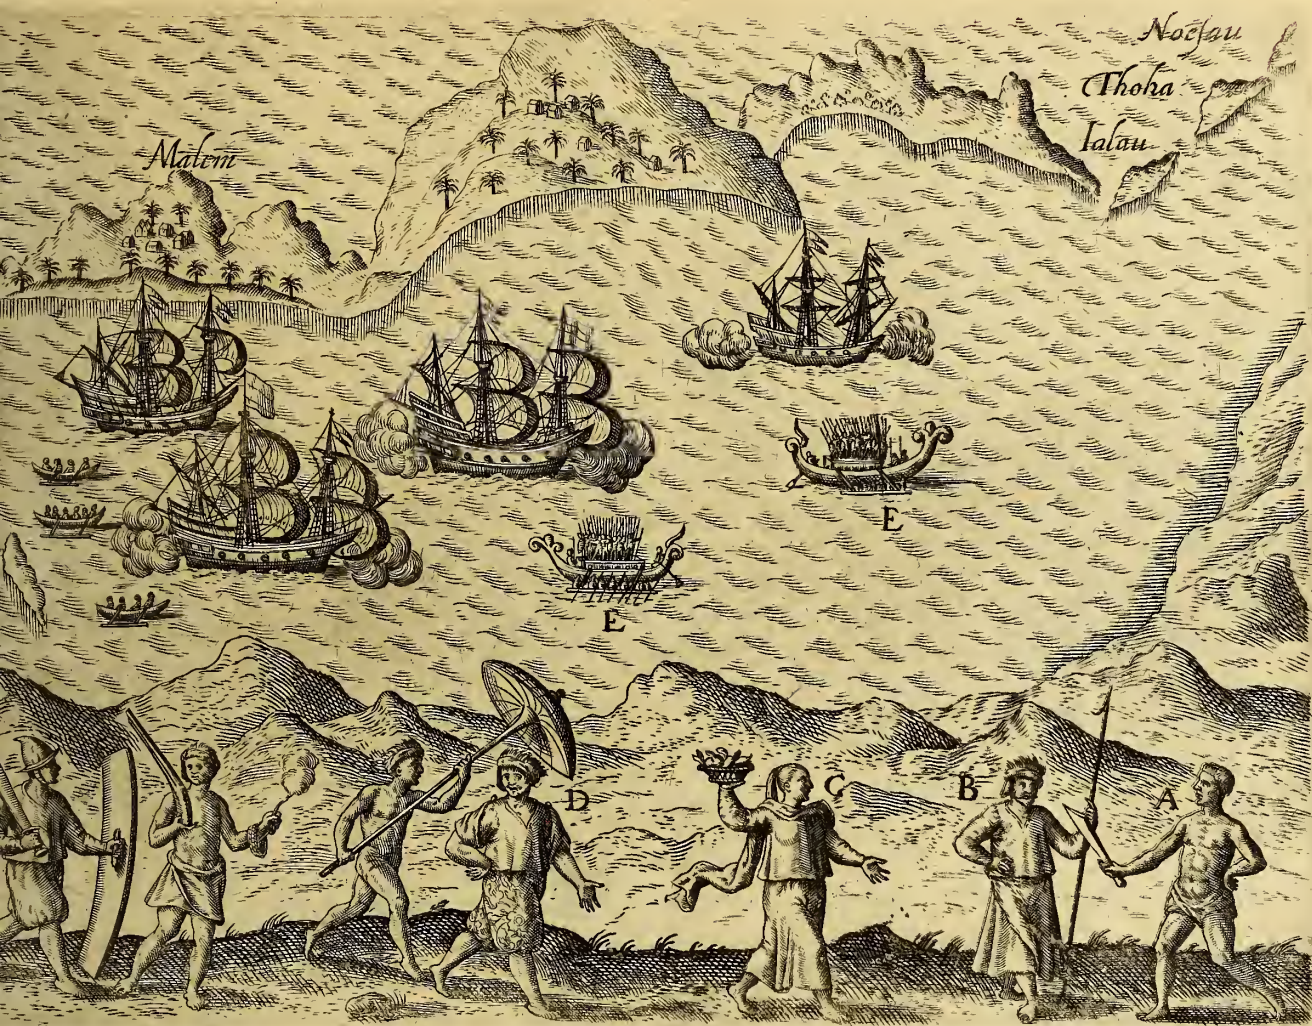 Noeſau
Thoha
Ialau
Malem
E
E
D
C
B
A